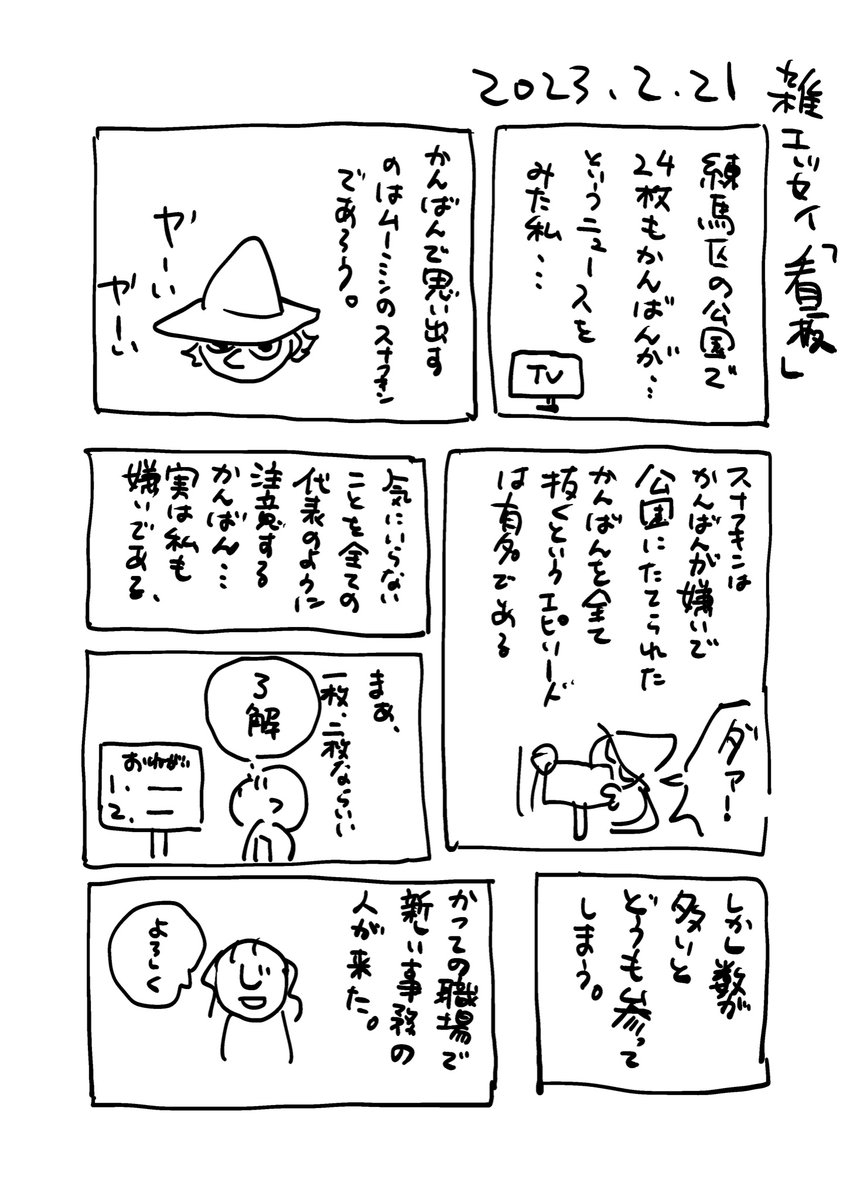 雑エッセイ「看板」
2023.2.21
練馬区の公園で
24枚もかんばんが…
というニュースを
みた私…
TV
かんばんで思い出す
のはムーミンのスナフキン
であろう。
ヤーい
ヤーい
スナフキンは
かんばんが嫌いで
公園にたてられた
かんばんを全て
抜くというエピソード
は有名である
ダァー!
気にいらない
ことを全ての
代表のように
注意する
かんばん…
実は私も
嫌いである、
まぁ、
一枚、二枚ならいい
了解
おねがい
1.
2.
しかし数が
多いと
どうも参って
しまう。
かつての職場で
新しい事務の
人が来た。
よろしく